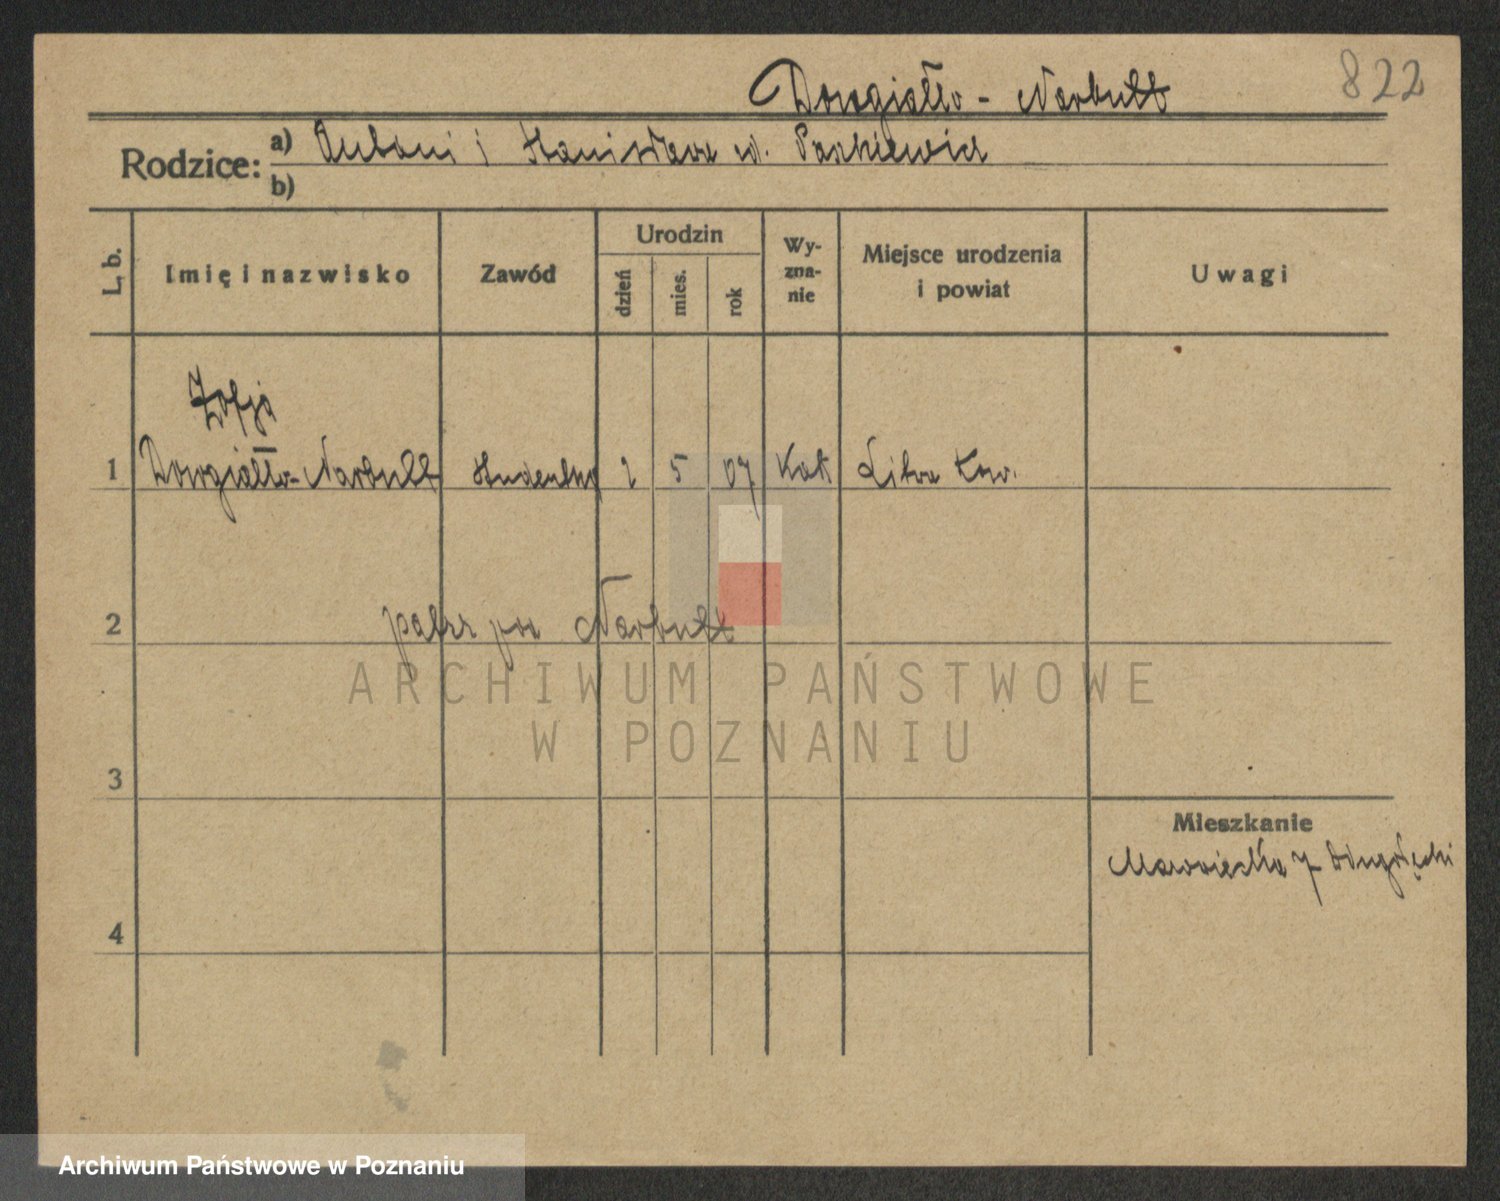 Dowgiałło - Narbutt
822
Rodzice:
a) Antoni i Stanisława
b)
L. b.
Imię i nazwisko
Zawód
Urodzin
dzień
mies.
rok
Wy-
zna-
nie
Miejsce urodzenia
i powiat
Uwagi
Zofja
1 Dowgiałło-Narbutt studentka 2 5 07 Kat Litwa Kow.
2 patrz pod Narbutt
3
4
Mieszkanie
Mazowiecka 7
ARCHIWUM PAŃSTWOWE
W POZNANIU
Archiwum Państwowe w Poznaniu